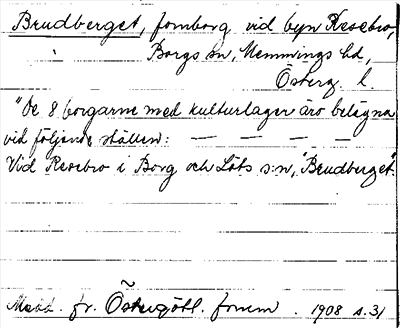 Brudberget, fornborg vid byn Resebro,
Borgs sn, Memmings hd,
Österg. l.
"De 8 borgarne med kulturlager äro belägna
vid följande ställen: — — — —
Vid Resebro i Borg och Löts s:n, "Brudberget".
Medd. fr. Östergötl. fornm. 1908 s. 31